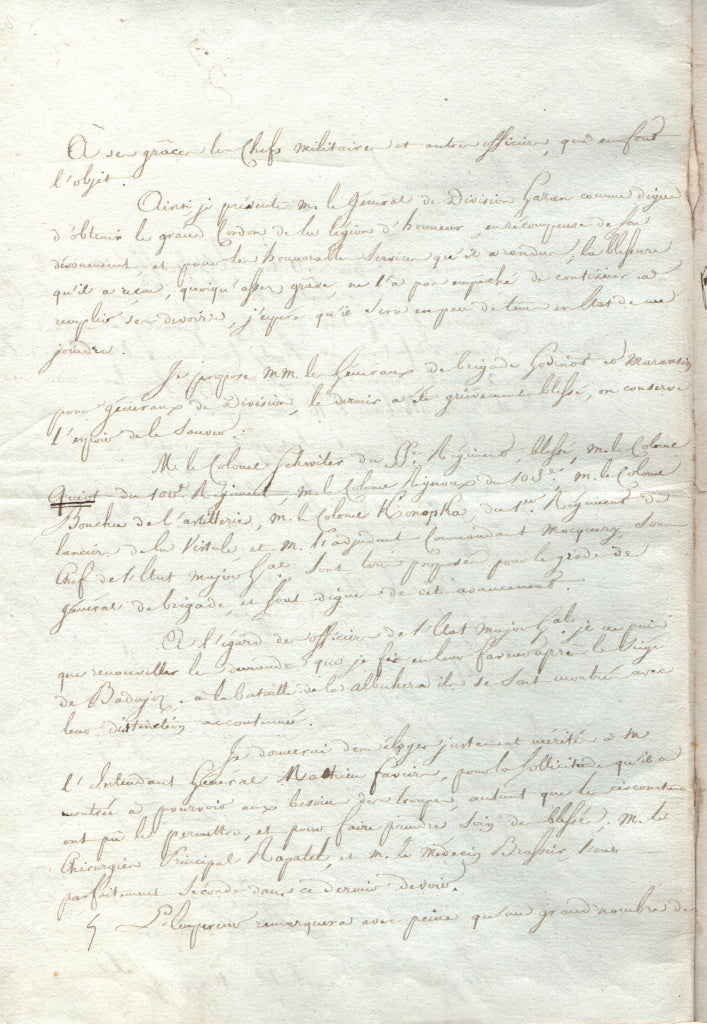 A ses grâces les Chefs militaires et autres officiers, qui en font
l'objet.
Ainsi je présente M. le Général de Division Gazan comme digne
d'obtenir le grand Cordon de la légion d'honneur, en récompense de son
dévouement, et pour les honorables Services qu'il a rendus; la blessure
qu'il a reçue, quoiqu'assez grave, ne l'a pas empêché de continuer à
remplir ses devoirs, j'espère qu'il sera en peu de tems en Etat de me
joindre.
Je propose MM. les Généraux de brigade Godinot et Maransin
pour généraux de Division, le dernier a été grièvement blessé, on conserve
l'espoir de le Sauver.
M. le Colonel Schwiter du 55e. Régiment blessé, M. le Colonel
Quiot du 100e. Régiment, M. le Colonel Rignoux du 103e. M. le Colonel
Bouchu de l'artillerie, M. le Colonel Konopka, du 1er. Régiment de
lanciers de la Vistule et M. l'adjudant Commandant Mocquery, Sous
Chef de l'Etat major Gal. Sont tous proposés pour le grade de
général de brigade, et Sont dignes de cet avancement.
A l'égard des officiers de l'Etat Major Gal. je ne puis
que renouveller les demandes que je fis en leur faveur après le Siège
de Badajoz. à la bataille de la albuhera ils se Sont montrés avec
leur distinction accoutumée.
Je donnerai des éloges justement mérités à M
l'Intendant Général Mathieu Faviers, pour la Sollicitude qu'il a
montrée à pourvoir aux besoins des troupes, autant que les circonstances
ont pû le permettre, et pour faire prendre Soin des blessés; M. le
Chirurgien Principal Rapatel, et M. le Médecin Brassier, l'ont
parfaitement Secondé dans ce dernier devoir.
L'Empereur remarquera avec peine qu'un grand nombre de